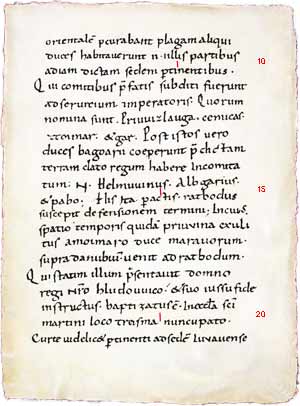 orientalē pcurabant plagam aliqui
duces habitaverunt n illis partibus 10
ad iam dictam sedem ptinentibus.
Qui comitibus pfatis subditi fuerunt
ad servitium imperatoris. Quorum
nomina sunt. Priuuizlauga. cemicas.
ztoimar. &gar. Post istos vero
duces bagoarii coeperunt pdictam
terram dato regum habere in comita
tum. N. Helmuuinus. Albgarius. 15
&pabo. His ita pactis. ratbodus
suscepit defensionem termini; In cuius
spatio temporis quidā priuuina exuli
tus a moimaro duce maravorum.
supra danubiū venit ad ratbodum.
Qui statim illum psentavit domno
regi nr̄o hludouuico. &suo iussu fide
instructus. baptizatus ē. In eccla sci
martini loco treisma nuncupato. 20
Curte videlic& ptinenti ad sedē iuvavense